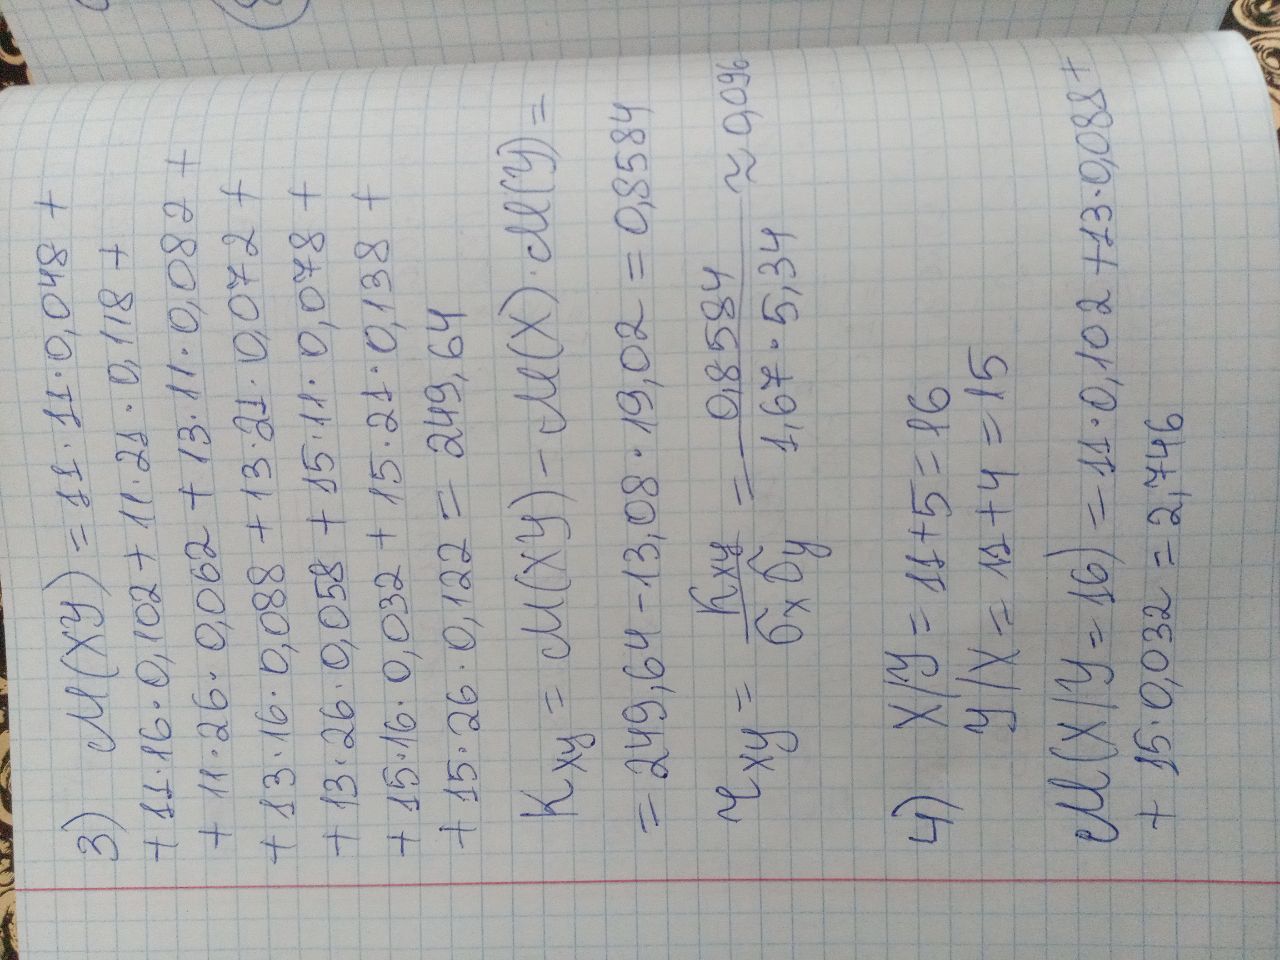 3) M(XY) = 11·11·0,048 +
+ 11·16·0,102 + 11·21·0,118 +
+ 11·26·0,062 + 13·11·0,082 +
+ 13·16·0,088 + 13·21·0,072 +
+ 13·26·0,058 + 15·11·0,078 +
+ 15·16·0,032 + 15·21·0,138 +
+ 15·26·0,122 = 249,64
Kxy = M(XY) - M(X)·M(Y) =
= 249,64 - 13,08·19,02 = 0,8584
rxy = Kxy / σx σy = 0,8584 / 1,67·5,34 ≈ 0,096
4) X/Y = 11+5 = 16
Y/X = 11+4 = 15
M(X/Y=16) = 11·0,102 + 13·0,088 +
+ 15·0,032 = 2,746